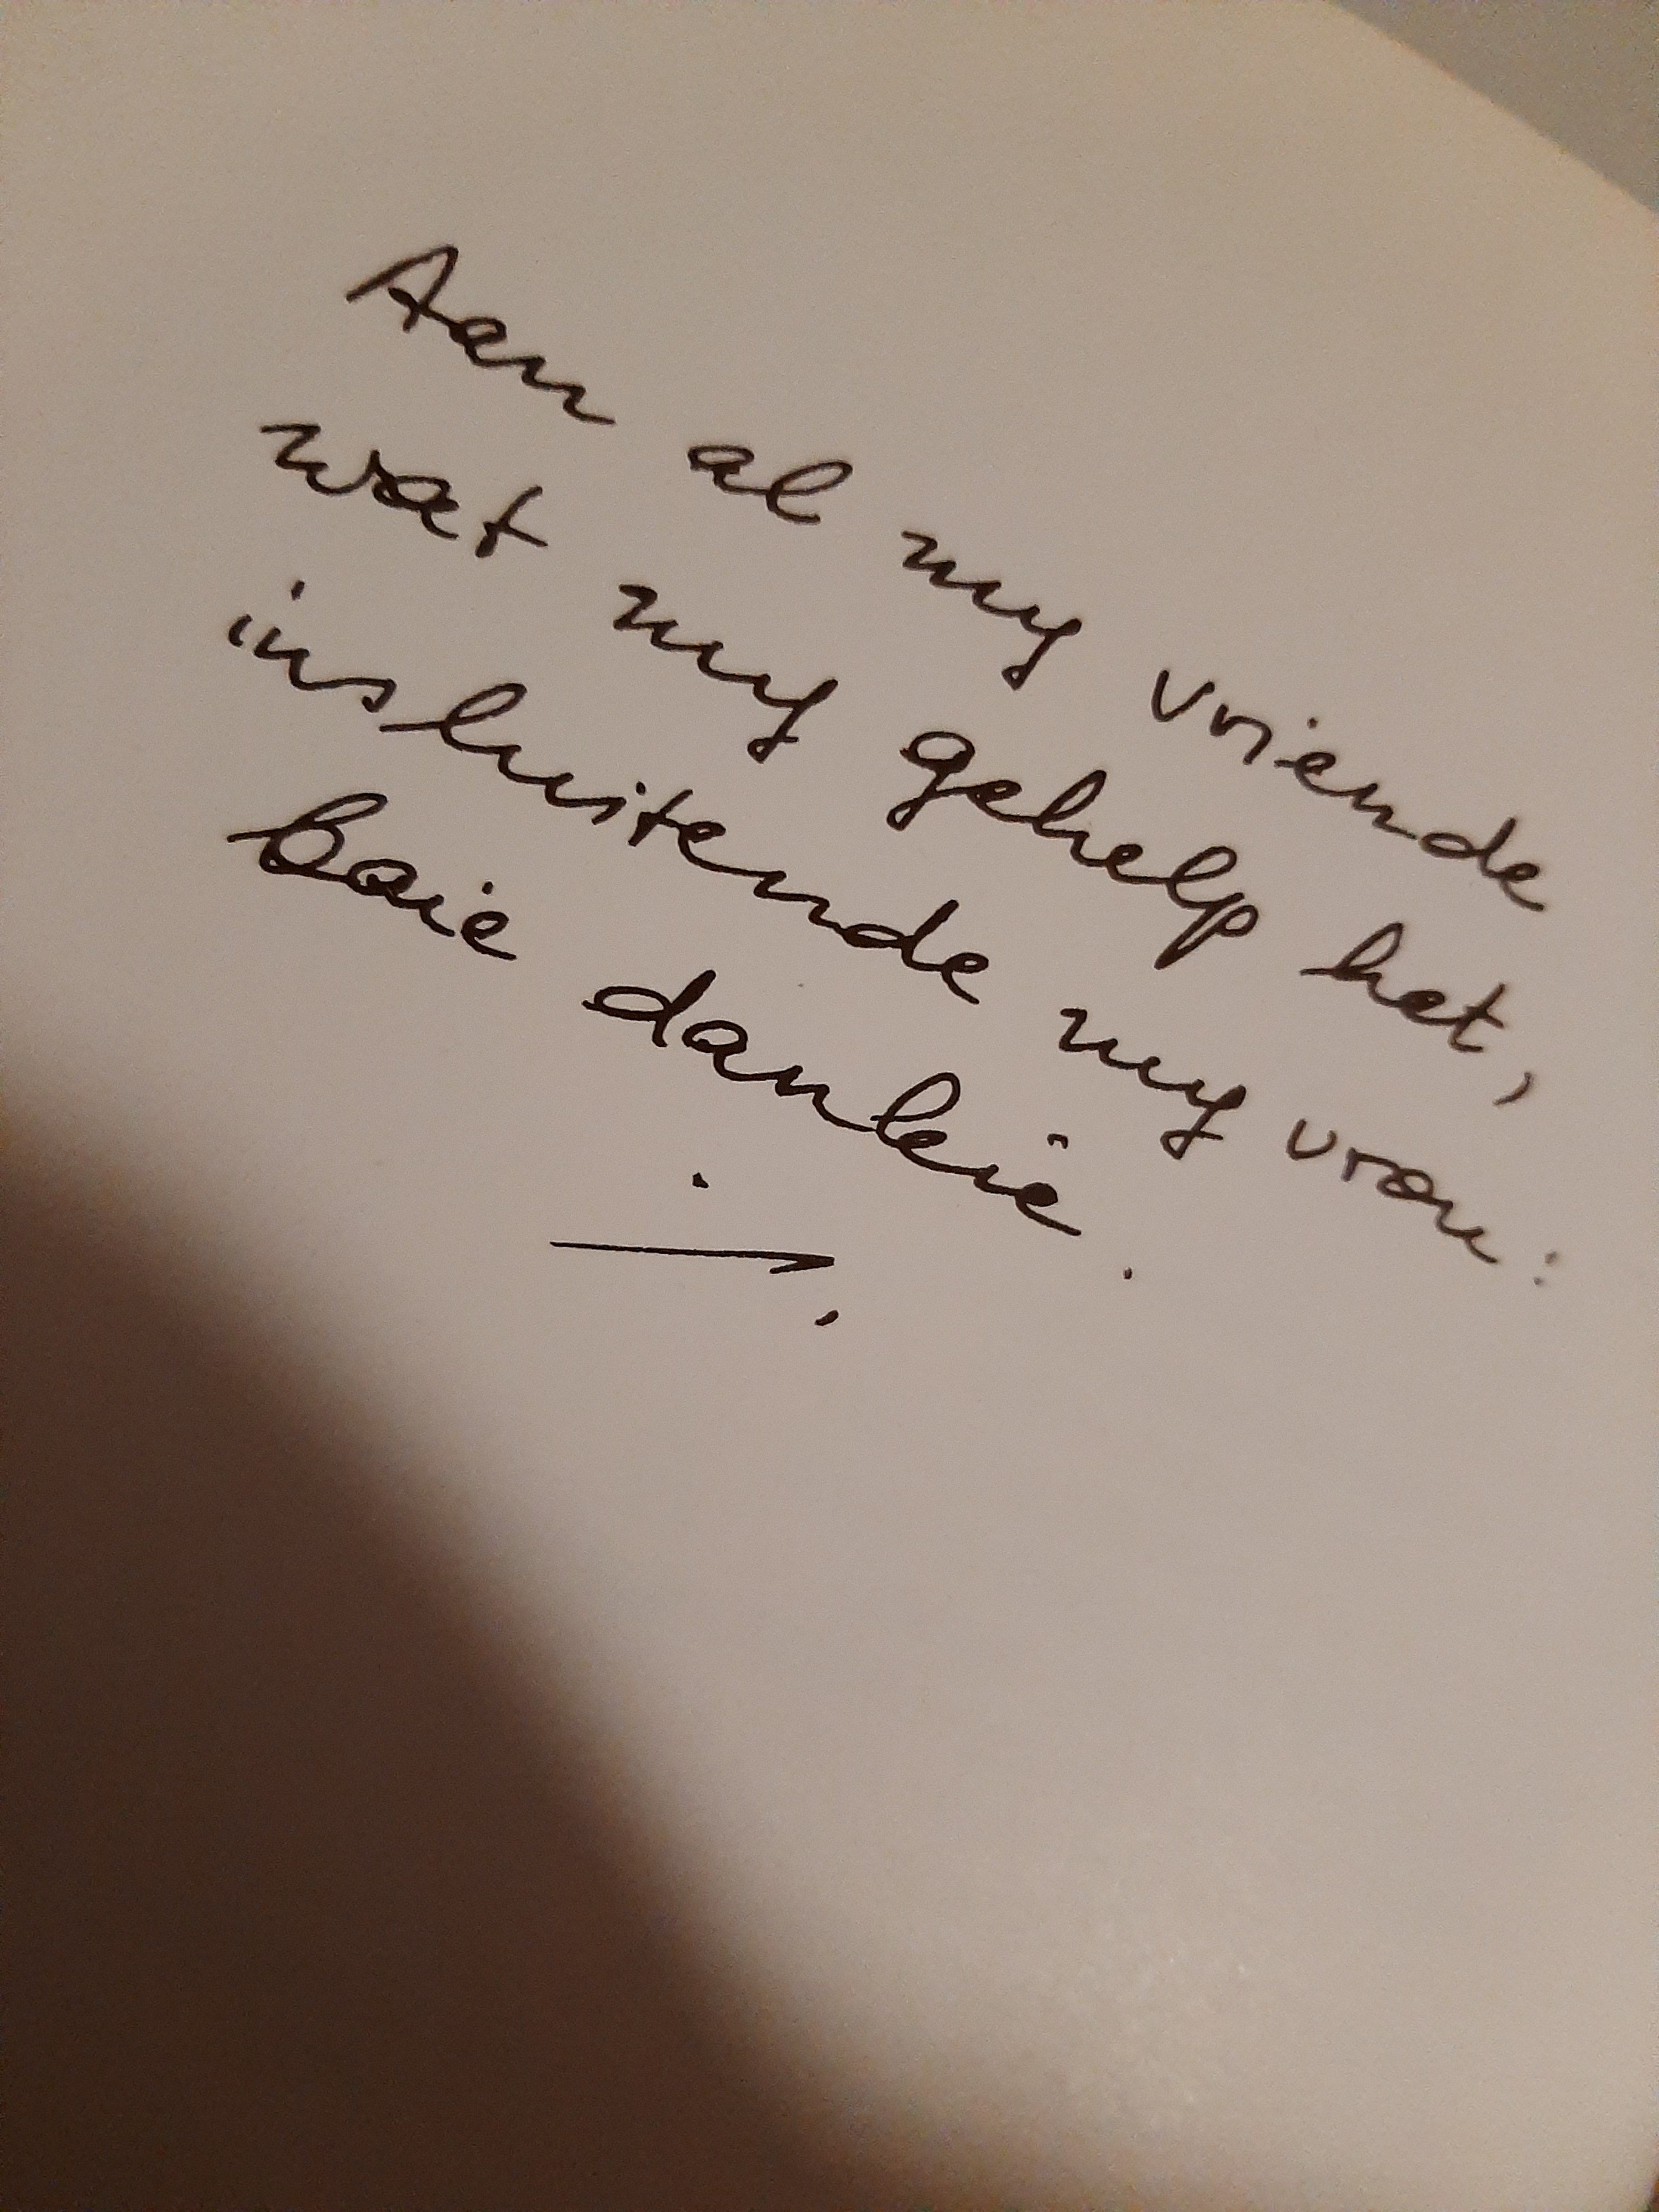 Aan al my vriende
wat my gehelp het,
insluitende my vrou:
Baie dankie.